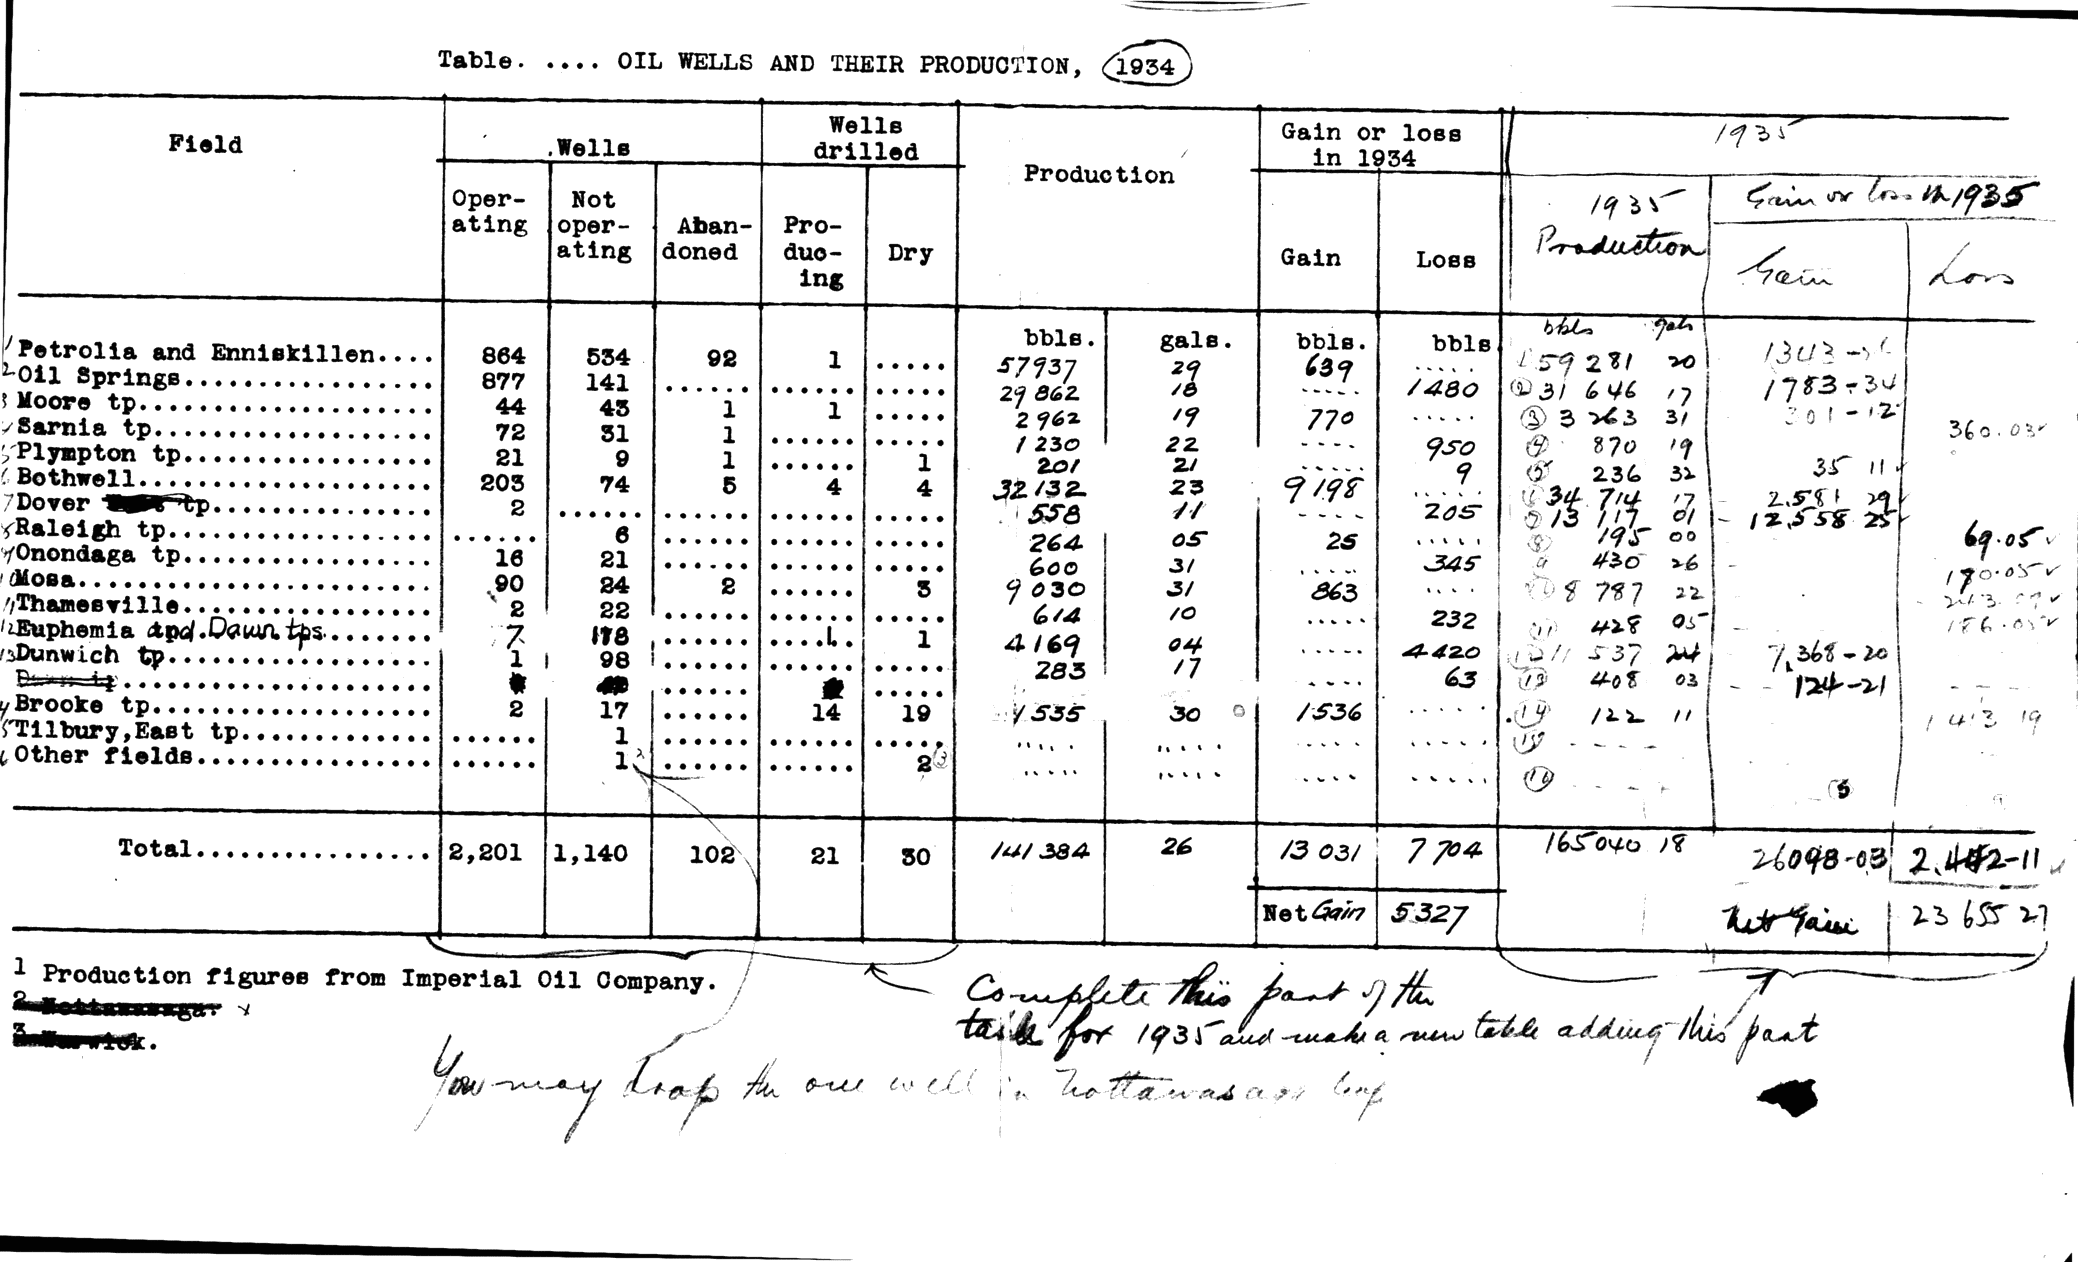 Table. .... OIL WELLS AND THEIR PRODUCTION, 1934
Field Wells Wells drilled Production Gain or loss in 1934 1935
Oper-ating Not oper-ating Aban-doned Pro-duc-ing Dry Gain Loss 1935 Production Gain or loss in 1935 Gain Loss
bbls. gals. bbls. bbls bbls gals
1 Petrolia and Enniskillen.... 864 534 92 1 ..... 57937 29 639 ..... 1 59 281 20 1343-
2 Oil Springs................. 877 141 ...... ...... ..... 29 862 18 ..... 1480 2 31 646 17 1783-34
3 Moore tp.................... 44 43 1 1 ..... 2 962 19 770 ..... 3 3 263 31 301-12
Sarnia tp................... 72 31 1 ...... ..... 1 230 22 .... 950 4 870 19 360.03
5 Plympton tp................. 21 9 1 ...... 1 201 21 ..... 9 5 236 32 35 11
6 Bothwell.................... 203 74 5 4 4 32 132 23 9 198 ..... 6 34 714 17 2.581 29
7 Dover tp............... 2 ...... ...... ...... ..... 558 11 .... 205 7 13 117 01 - 12,558 25
8 Raleigh tp.................. ...... 6 ...... ...... ..... 264 05 25 ..... 8 195 00 69.05
9 Onondaga tp................. 16 21 ...... ...... ..... 600 31 ..... 345 9 430 26 170.05
10 Mosa........................ 90 24 2 ...... 3 9 030 31 863 .... 8 787 22 243.09
11 Thamesville................. 2 22 ...... ...... ..... 614 10 ..... 232 11 428 05 186.05
12 Euphemia and Dawn tps....... 7 178 ...... 1 1 4 169 04 ..... 4 420 12 11 537 24 7,368-20
13 Dunwich tp.................. 1 98 ...... ...... ..... 283 17 ..... 63 13 408 03 124-21
Brooke tp................... 2 17 ...... 14 19 1 535 30 1536 ..... 14 122 11 1 413 19
Tilbury,East tp............. ...... 1 ...... ...... ..... ..... ..... ..... ..... 15
Other fields................ ...... 1 2 ...... ...... 2 3 ..... ..... ..... ..... 16
Total................ 2,201 1,140 102 21 30 141 384 26 13 031 7 704 165 040 18 26098-03 2,442-11
Net Gain 5327 Net Gain 23 655 27
1 Production figures from Imperial Oil Company.
2 Nottawasaga.
3 Warwick.
Complete this part of the
table for 1935 and make a new table adding this part
You may drop the one well in Nottawasaga twp